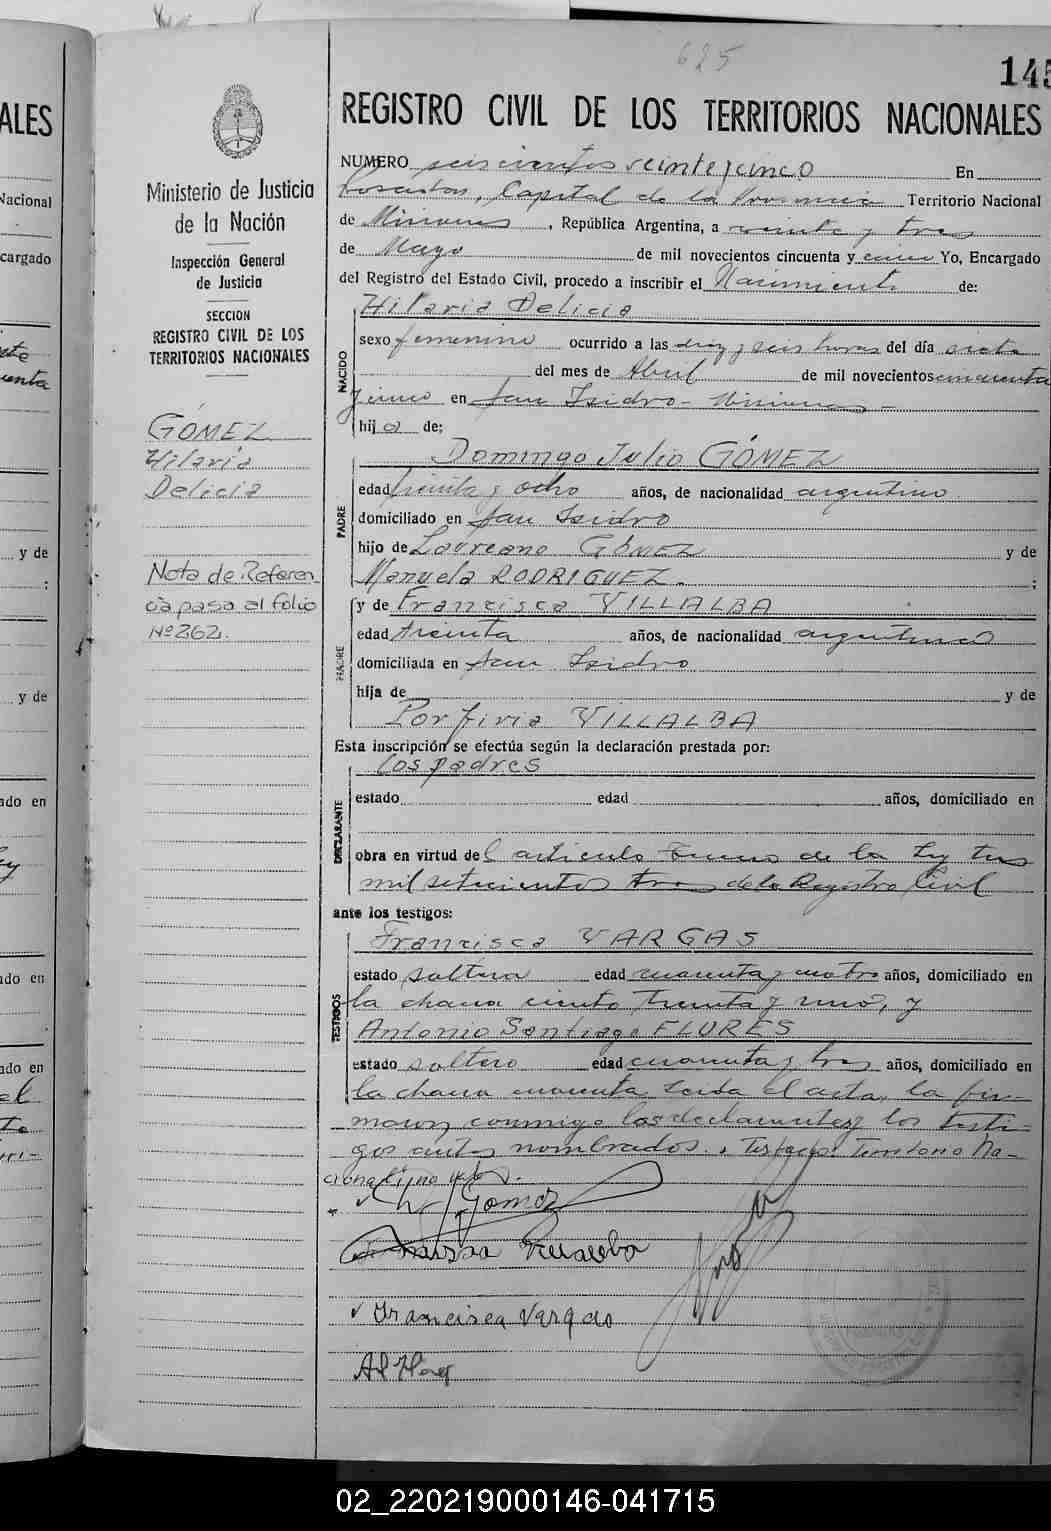 625
145
ALES
REGISTRO CIVIL DE LOS TERRITORIOS NACIONALES
NUMERO seiscientos veinte y cinco En
Posadas, Capital de la Provincia Territorio Nacional
de Misiones, República Argentina, a veinte y tres
de Mayo de mil novecientos cincuenta y cinco Yo, Encargado
del Registro del Estado Civil, procedo a inscribir el Nacimiento de:
Hilaria Delicia
NACIDO
sexo femenino ocurrido a las diez y seis horas del día siete
del mes de Abril de mil novecientos cincuenta
y cinco en San Isidro - Misiones -
hija de;
Domingo Julio GÓMEZ
PADRE
edad treinta y ocho años, de nacionalidad argentino
domiciliado en San Isidro
hijo de Laureano GÓMEZ y de
Manuela RODRIGUEZ. ;
y de Francisca VILLALBA
MADRE
edad treinta años, de nacionalidad argentina
domiciliada en San Isidro
hija de y de
Porfiria VILLALBA
Esta inscripción se efectúa según la declaración prestada por:
los padres
DECLARANTE
estado edad años, domiciliado en
obra en virtud del artículo de la Ley tres
mil setecientos tres de la Registro Civil
ante los testigos:
Francisca VARGAS
TESTIGOS
estado soltera edad cuarenta y cuatro años, domiciliado en
la chacra ciento treinta y uno, y
Antonio Santiago FLORES
estado soltero edad cuarenta y tres años, domiciliado en
la chacra cuarenta Leida el acta, la fir-
maron conmigo los declarantes y los testi-
gos antes nombrados. Testado: Territorio Na-
cional: no vale.
Gomez
Francisca Vargas
Ministerio de Justicia
de la Nación
Inspección General
de Justicia
SECCION
REGISTRO CIVIL DE LOS
TERRITORIOS NACIONALES
GÓMEZ
Hilaria
Delicia
Nota de Referen-
cia pasa al folio
Nº 262.
Nacional
cargado
y de
;
y de
ado en
ado en
ado en
02_220219000146-041715